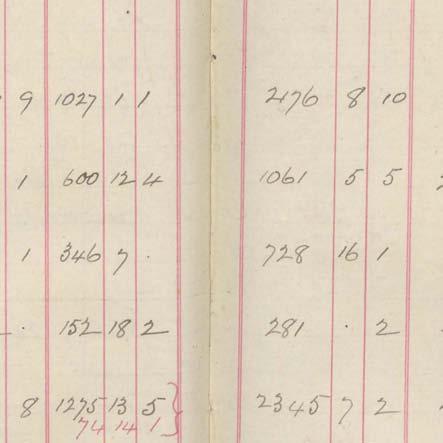 9 1027 1 1 2176 8 10
1 600 12 4 1061 5 5
1 346 7 . 728 16 1
. 152 18 2 281 . 2
8 1275 13 5 2345 7 2
74 14 1